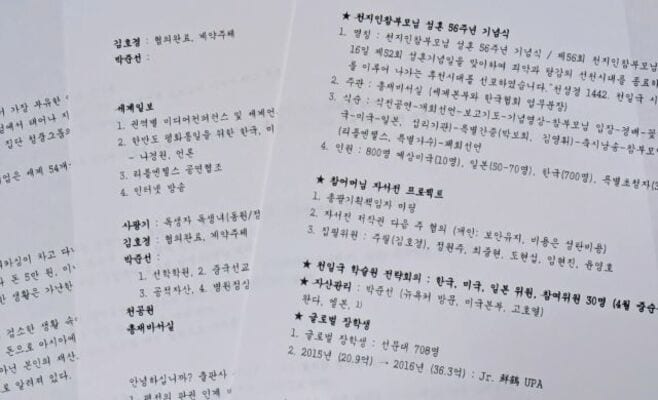 서 가장 부유한 
남에서 태어나 지
집단 철중그룹의
업은 세계 54개
차실이 차고 다니
돈 5만 원, 이
한 생활은 가난한
검소한 생활 속
돈으로 아시아에
아닌 본인의 재산
로 알려져 있다.
김호경 : 협의완료, 계약주체
박준선 :
세계일보
1. 권역별 미디어컨퍼런스 및 세계언
2. 한반도 평화통일을 위한 한국, 미
- 나경원, 언론
3. 리틀엔젤스 공연협조
4. 인터넷 방송
사광기 : 독생자 독생녀(동원/점
김호경 : 협의완료, 계약주체
박준선 :
1. 선학학원, 2. 중국선교
3. 공적자산, 4. 병원점심
천공원
총재비서실
안녕하십니까? 출판사
1. 평전의 판권 인계
★ 천지인참부모님 성혼 56주년 기념식
1. 명칭 : 천지인참부모님 성혼 56주년 기념식 / 제56회 천지인참부모
16일 제52회 성혼기념일을 맞이하여 죄악과 탕감의 선천시대를 종료하
를 이루어 나가는 후천시대를 선포하였습니다."천성경 1442. 천일국 시
2. 주관 : 총재비서실 (세계본부와 한국협회 업무분장)
3. 식순 : 식전공연-개회선언-보고기도-기념영상-참부모님 입장-경배-꽃
국-미국-일본, 섭리기관)-특별간증(박보희, 김영휘)-축시낭송-참부모
(리틀엔젤스, 특별가수)-폐회선언
4. 인원 : 800명 예상미국(10명), 일본(50-70명), 한국(700명), 특별초청자(3
★ 참어머님 자서전 프로젝트
1. 총괄기획책임자 미팅
2. 자서전 저작권 다음 주 협의 (개인: 보안유지, 비용은 성탄비용)
3. 집필위원 : 주필(김호경), 정원주, 최줄현, 도현섭, 임현진, 윤영호
★ 천일국 학술원 전략회의 : 한국, 미국, 일본 위원, 참여위원 30명 (4월 중순
★ 자산관리 : 박준선 (뉴욕처 방문, 미국본부, 고호열)
완다, 엘본, 1)
★ 글로벌 장학생
1. 글로벌 장학생 : 선문대 708명
2. 2015년 (20.9억) → 2016년 (36.3억) : Jr. 鮮鶴 UPA